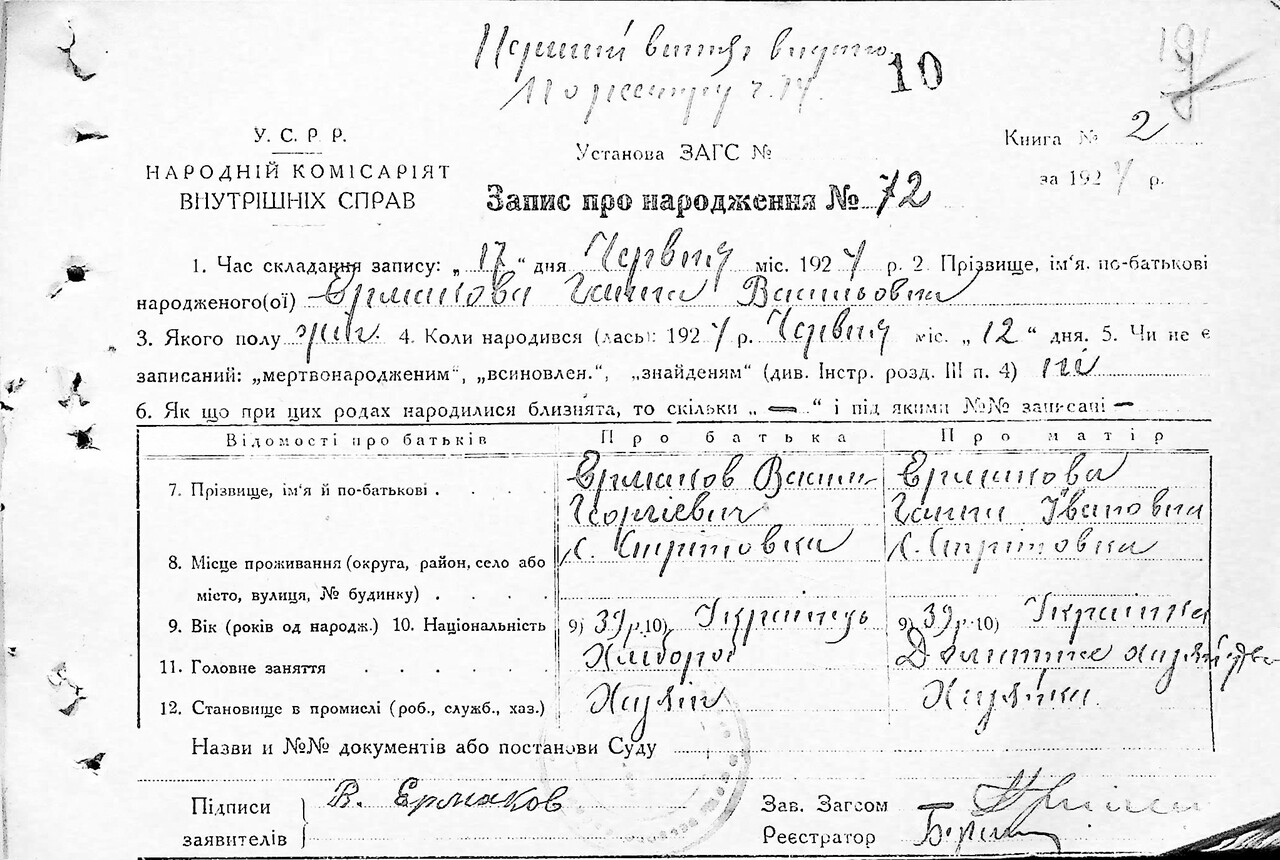 Перший витяг видано
По реєстру ч. 14.
10
19
У. С. Р. Р.
НАРОДНІЙ КОМІСАРІЯТ
ВНУТРІШНІХ СПРАВ
Установа ЗАГС №
Книга № 2
за 1924 р.
Запис про народження № 72
1. Час складання запису: „ 17 “ дня Червня міс. 1924 р. 2. Прізвище, ім'я, по-батькові
народженого(ої) Єрмакова Ганна Васильовна
3. Якого полу жін. 4. Коли народився (лась): 1924 р. Червня міс. „ 12 “ дня. 5. Чи не є
записаний: „мертвонародженим“, „всиновлен.“, „знайденям“ (див. Інстр. розд. III п. 4) ні
6. Як що при цих родах народилися близнята, то скільки „ — “ і під якими №№ записані —
Відомості про батьків Про батька Про матір
7. Прізвище, ім'я й по-батькові . . . . . Єрмаков Васил Георгієвич Єрмакова Ганна Івановна
8. Місце проживання (округа, район, село або
місто, вулиця, № будинку) . . . . с. Стритовка с. Стритовка
9. Вік (років од народж.) 10. Національність 9) 39 р. 10) Українець 9) 39 р. 10) Українка
11. Головне заняття . . . . . . Хлібороб Домашнє хазяйство
12. Становище в промислі (роб., служб., хаз.) Хазяін Хазяйка
Назви и №№ документів або постанови Суду
Підписи
заявителів
В. Ермаков
Зав. Загсом
Реєстратор